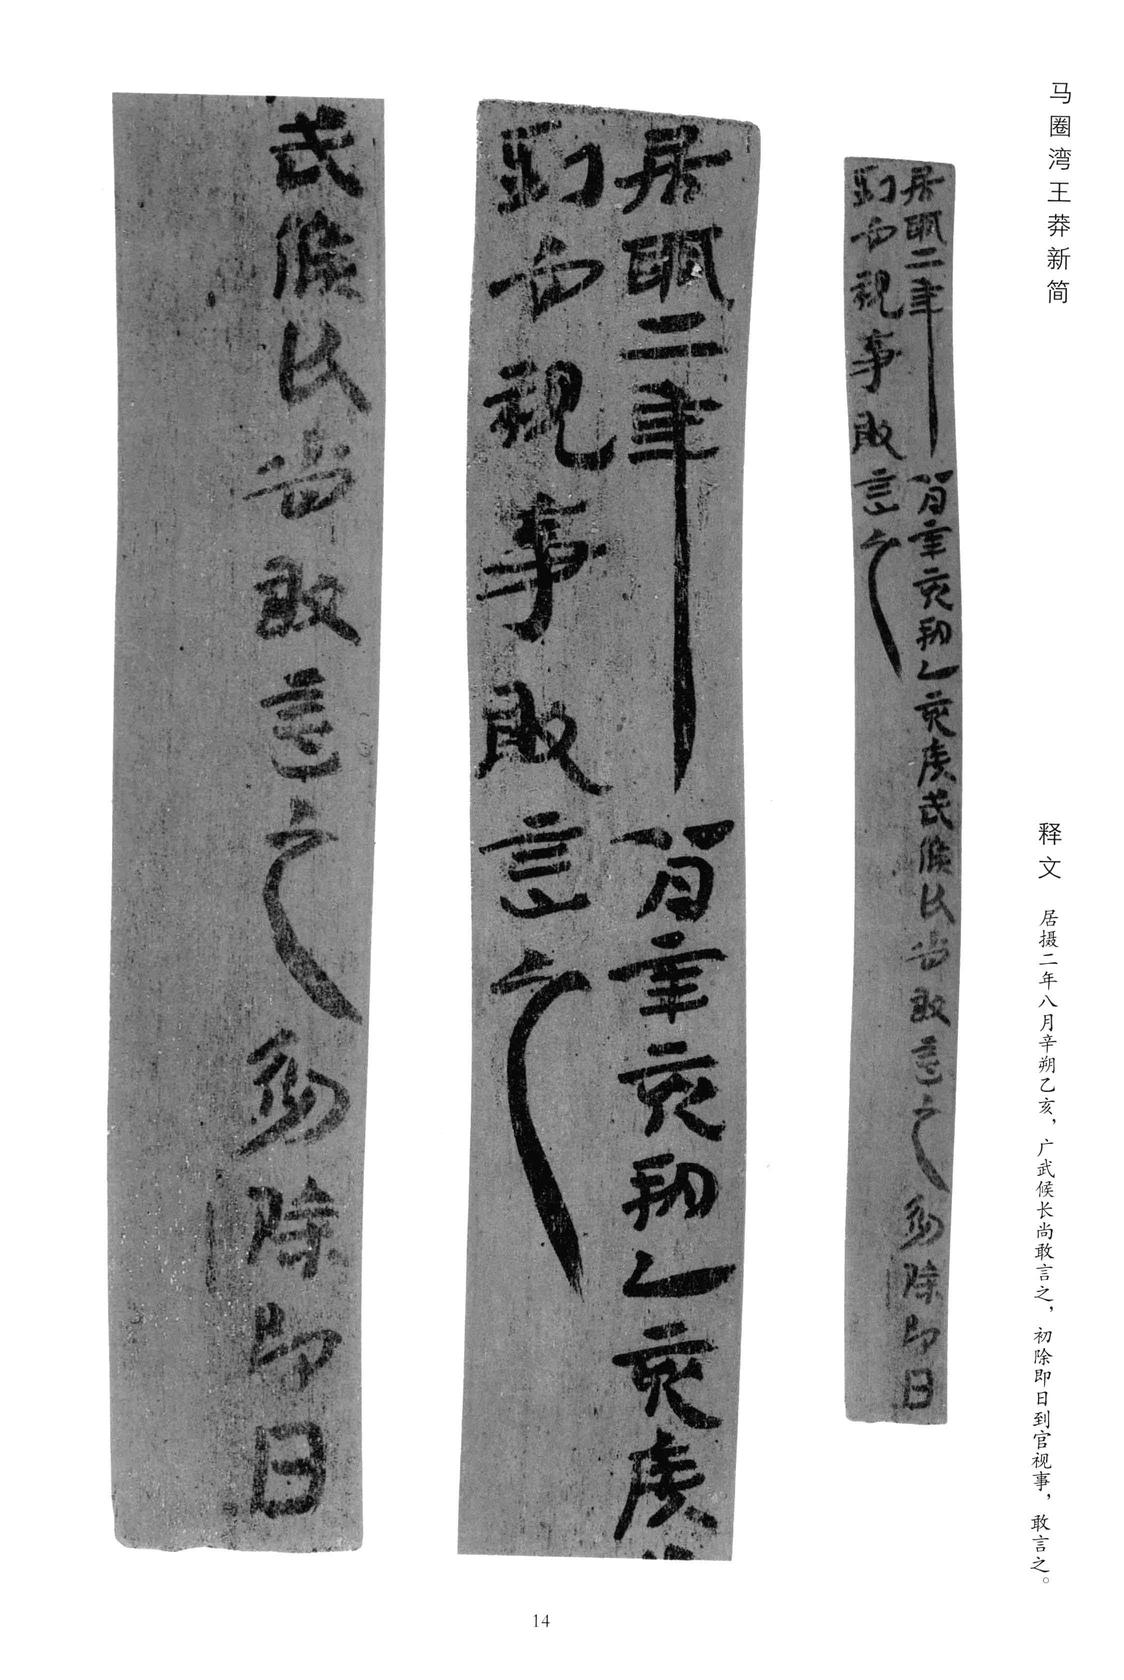 马圈湾王莽新简
释文 居摄二年八月辛朔乙亥，广武候长尚敢言之，初除即日到官视事，敢言之。
居攝二年八月辛亥朔乙亥廣武候長尚敢言之初除即日
到官視事敢言之
居攝二年八月辛亥朔乙亥廣
到官視事敢言之
武候長尚敢言之初除即日
14